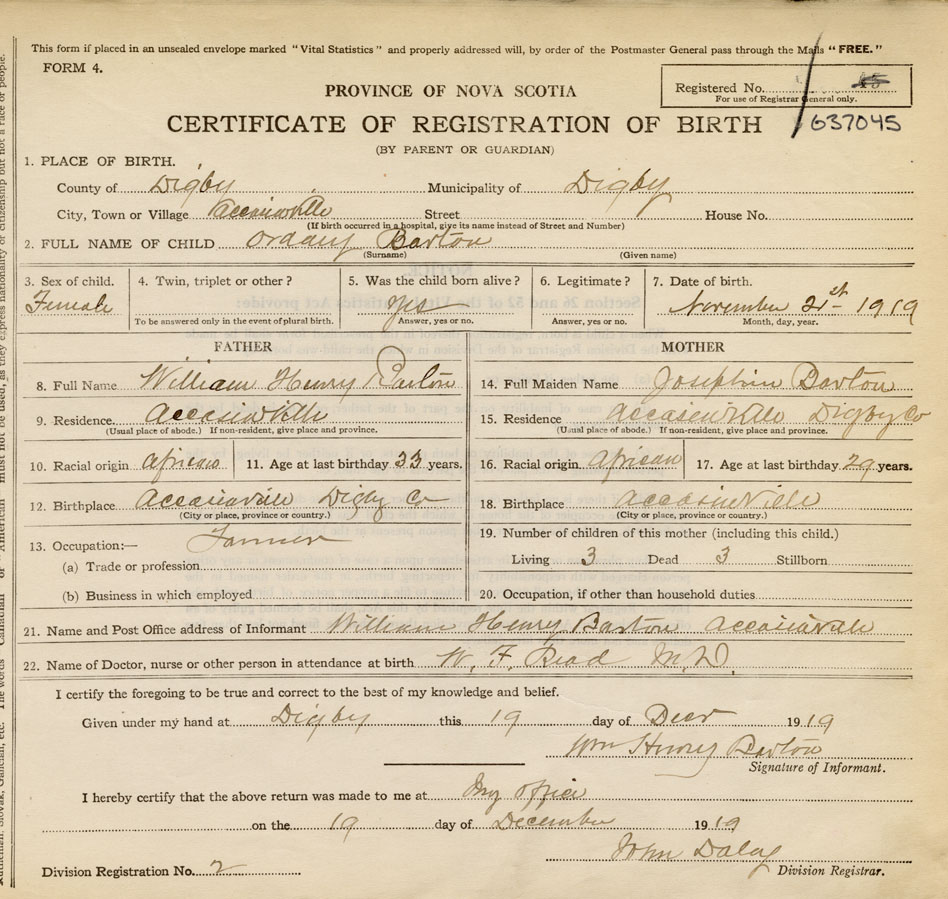 This form if placed in an unsealed envelope marked "Vital Statistics" and properly addressed will, by order of the Postmaster General pass through the Mails "FREE."
FORM 4.
Registered No. 45
For use of Registrar General only.
PROVINCE OF NOVA SCOTIA
CERTIFICATE OF REGISTRATION OF BIRTH
637045
(BY PARENT OR GUARDIAN)
1. PLACE OF BIRTH.
County of Digby Municipality of Digby
City, Town or Village Street House No.
(If birth occurred in a hospital, give its name instead of Street and Number)
2. FULL NAME OF CHILD Barton
(Surname) (Given name)
3. Sex of child. 4. Twin, triplet or other? 5. Was the child born alive? 6. Legitimate? 7. Date of birth.
Female Yes November 21st 1919
To be answered only in the event of plural birth. Answer, yes or no. Answer, yes or no. Month, day, year.
FATHER MOTHER
8. Full Name William Henry Barton 14. Full Maiden Name Barton
9. Residence 15. Residence Digby Co
(Usual place of abode.) If non-resident, give place and province. (Usual place of abode.) If non-resident, give place and province.
10. Racial origin African 11. Age at last birthday 33 years. 16. Racial origin African 17. Age at last birthday 29 years.
12. Birthplace Digby Co 18. Birthplace
(City or place, province or country.) (City or place, province or country.)
13. Occupation:— Farmer 19. Number of children of this mother (including this child.)
(a) Trade or profession Living 3 Dead 3 Stillborn
(b) Business in which employed 20. Occupation, if other than household duties
21. Name and Post Office address of Informant William Henry Barton
22. Name of Doctor, nurse or other person in attendance at birth W. F. Read M.D.
I certify the foregoing to be true and correct to the best of my knowledge and belief.
Given under my hand at Digby this 19 day of 1919
Wm Henry Barton
Signature of Informant.
I hereby certify that the above return was made to me at My office
on the 19 day of December 1919
John Daley
Division Registration No. 2 Division Registrar.